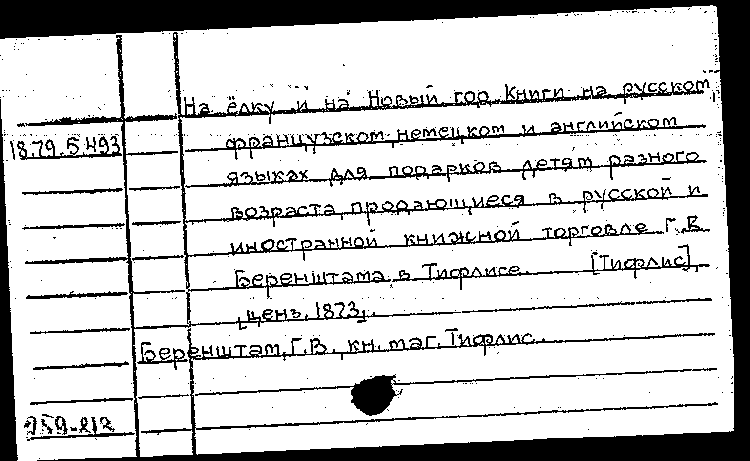 На ёлку и на Новый год Книги на русском,
18.79.5.493
французском, немецком и английском
языках для подарков детям разного
возраста, продающиеся в русской и
иностранной книжной торговле Г.В.
Беренштама в Тифлисе. [Тифлис],
ценз. 1873].
Беренштам, Г.В., кн. маг. Тифлис.